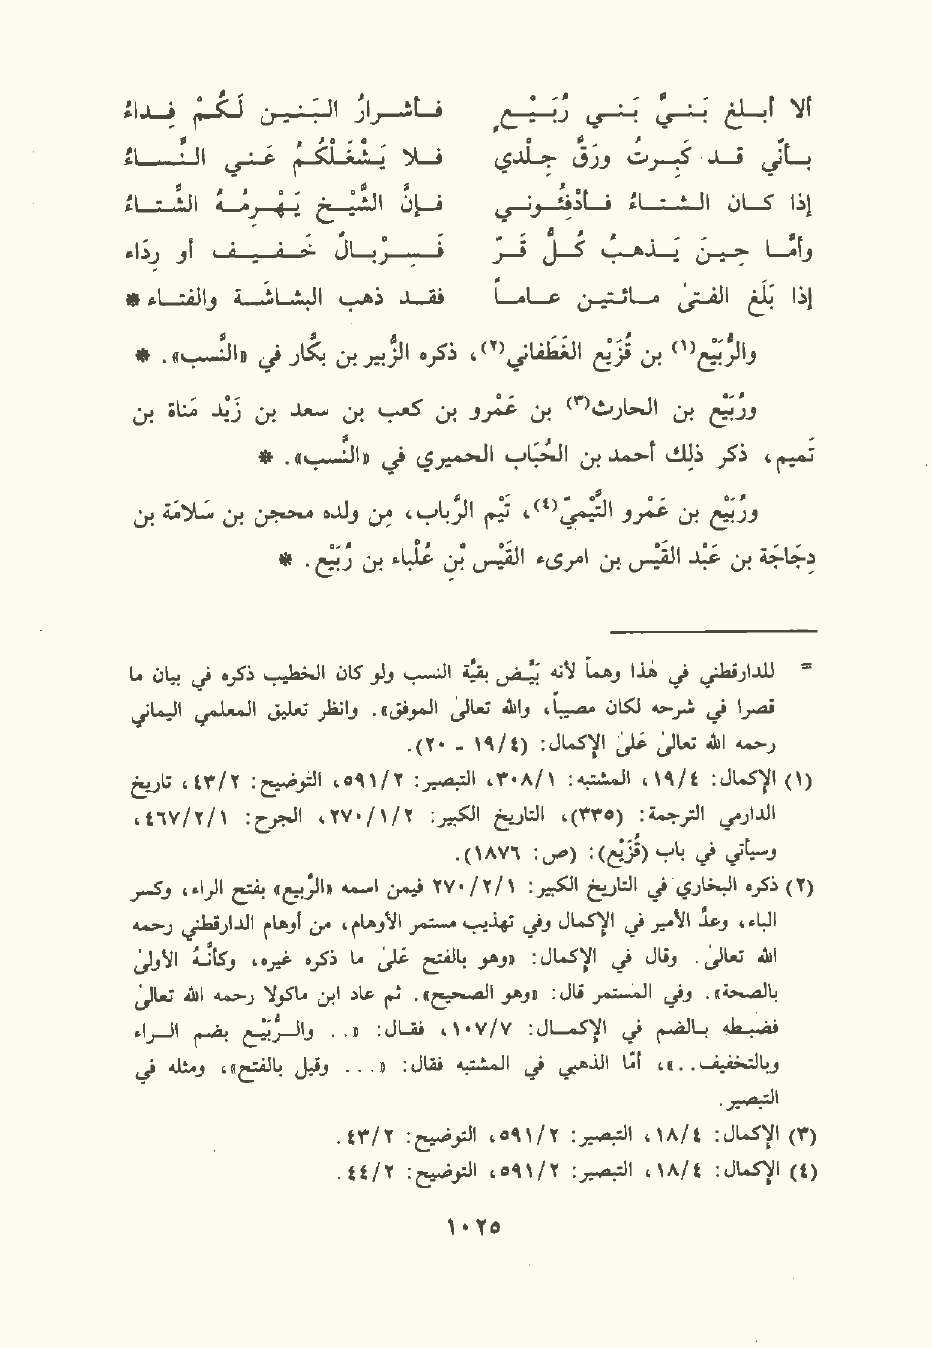 ألا أبلغ بَنيَّ بَني رُبَيْعٍ فأشرارُ البَنين لَكُمْ فِداءُ
بأنّي قد كَبِرتُ ورَقَّ جِلدي فلا يَشْغَلْكُمُ عني النِّساءُ
إذا كان الشتاءُ فأدْفِئُوني فإنّ الشَّيْخَ يَهْرِمُهُ الشِّتاءُ
وأمّا حينَ يَذهبُ كُلُّ قَرٍّ فَسِرْبالٌ خَفيفٌ أو رِداء
إذا بَلَغَ الفتىٰ مائتين عاماً فقد ذهب البشاشَة والفتاء *
والرُّبَيْع(١) بن قُزَيْع الغَطَفاني(٢)، ذكره الزُّبير بن بكَّار في «النَّسب». *
ورُبَيْع بن الحارث(٣) بن عَمْرو بن كعب بن سعد بن زَيْد مَناة بن
تَميم، ذكر ذلك أحمد بن الحُبَاب الحميري في «النَّسب». *
ورُبَيْع بن عَمْرو التَّيْميّ(٤)، تَيْم الرِّباب، من ولده محجن بن سَلاَمَة بن
دِجَاجَة بن عَبْد القَيْس بن امرىء القَيْس بْن عُلْبَاء بن رُبَيْع. *
= للدارقطني في هذا وهماً لأنه بَيَّض بقيَّة النسب ولو كان الخطيب ذكره في بيان ما
قصرا في شرحه لكان مصيباً، والله تعالىٰ الموفق». وانظر تعليق المعلمي اليماني
رحمه الله تعالىٰ علىٰ الإكمال: (١٩/٤ - ٢٠).
(١) الإكمال: ١٩/٤، المشتبه: ٣٠٨/١، التبصير: ٥٩١/٢، التوضيح: ٤٣/٢، تاريخ
الدارمي الترجمة: (٣٣٥)، التاريخ الكبير: ٢٧٠/١/٢، الجرح: ٤٦٧/٢/١،
وسيأتي في باب (قُزَيْع): (ص: ١٨٧٦).
(٢) ذكره البخاري في التاريخ الكبير: ٢٧٠/٢/١ فيمن اسمه «الرَّبيع» بفتح الراء، وكسر
الباء، وعدّ الأمير في الإكمال وفي تهذيب مستمر الأوهام، من أوهام الدارقطني رحمه
الله تعالىٰ. وقال في الإكمال: «وهو بالفتح علىٰ ما ذكره غيره، وكأنّهُ الأولىٰ
بالصحة». وفي المستمر قال: «وهو الصحيح». ثم عاد ابن ماكولا ورحمه الله تعالىٰ
فضبطه بالضم في الإكمال: ١٠٧/٧، فقال: «.. والرُّبَيْع بضم الراء
وبالتخفيف..»، أمّا الذهبي في المشتبه فقال: «... وقيل بالفتح»، ومثله في
التبصير.
(٣) الإكمال: ١٨/٤، التبصير: ٥٩١/٢، التوضيح: ٤٣/٢.
(٤) الإكمال: ١٨/٤، التبصير: ٥٩١/٢، التوضيح: ٤٤/٢.
١٠٢٥